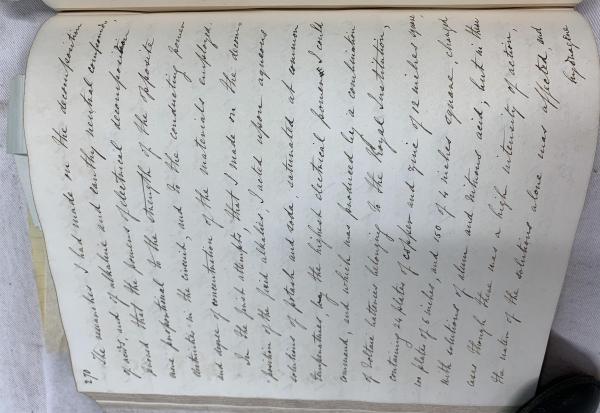 270
The researches I had made on the decomposition
of acids, and of alkaline and earthy neutral compounds,
proved that the powers of electrical decomposition
were proportional to the strength of the opposite
electricities in the circuit, and to the conducting power
and degree of concentration of the materials employed.
In the first attempts, that I made on the decom-
position of the fixed alkalies, I acted upon aqueous
solutions of potash and soda, saturated at common
temperatures, by the highest electrical power I could
command, and which was produced by a combination
of Voltaic batteries belonging to the Royal Institution,
containing 24 plates of copper and zinc of 12 inches square,
100 plates of 6 inches, and 150 of 4 inches square, charged
with solutions of alum and nitrous acid; but in these
cases though there was a high intensity of action,
the water of the solutions alone was affected, and
hydrogene